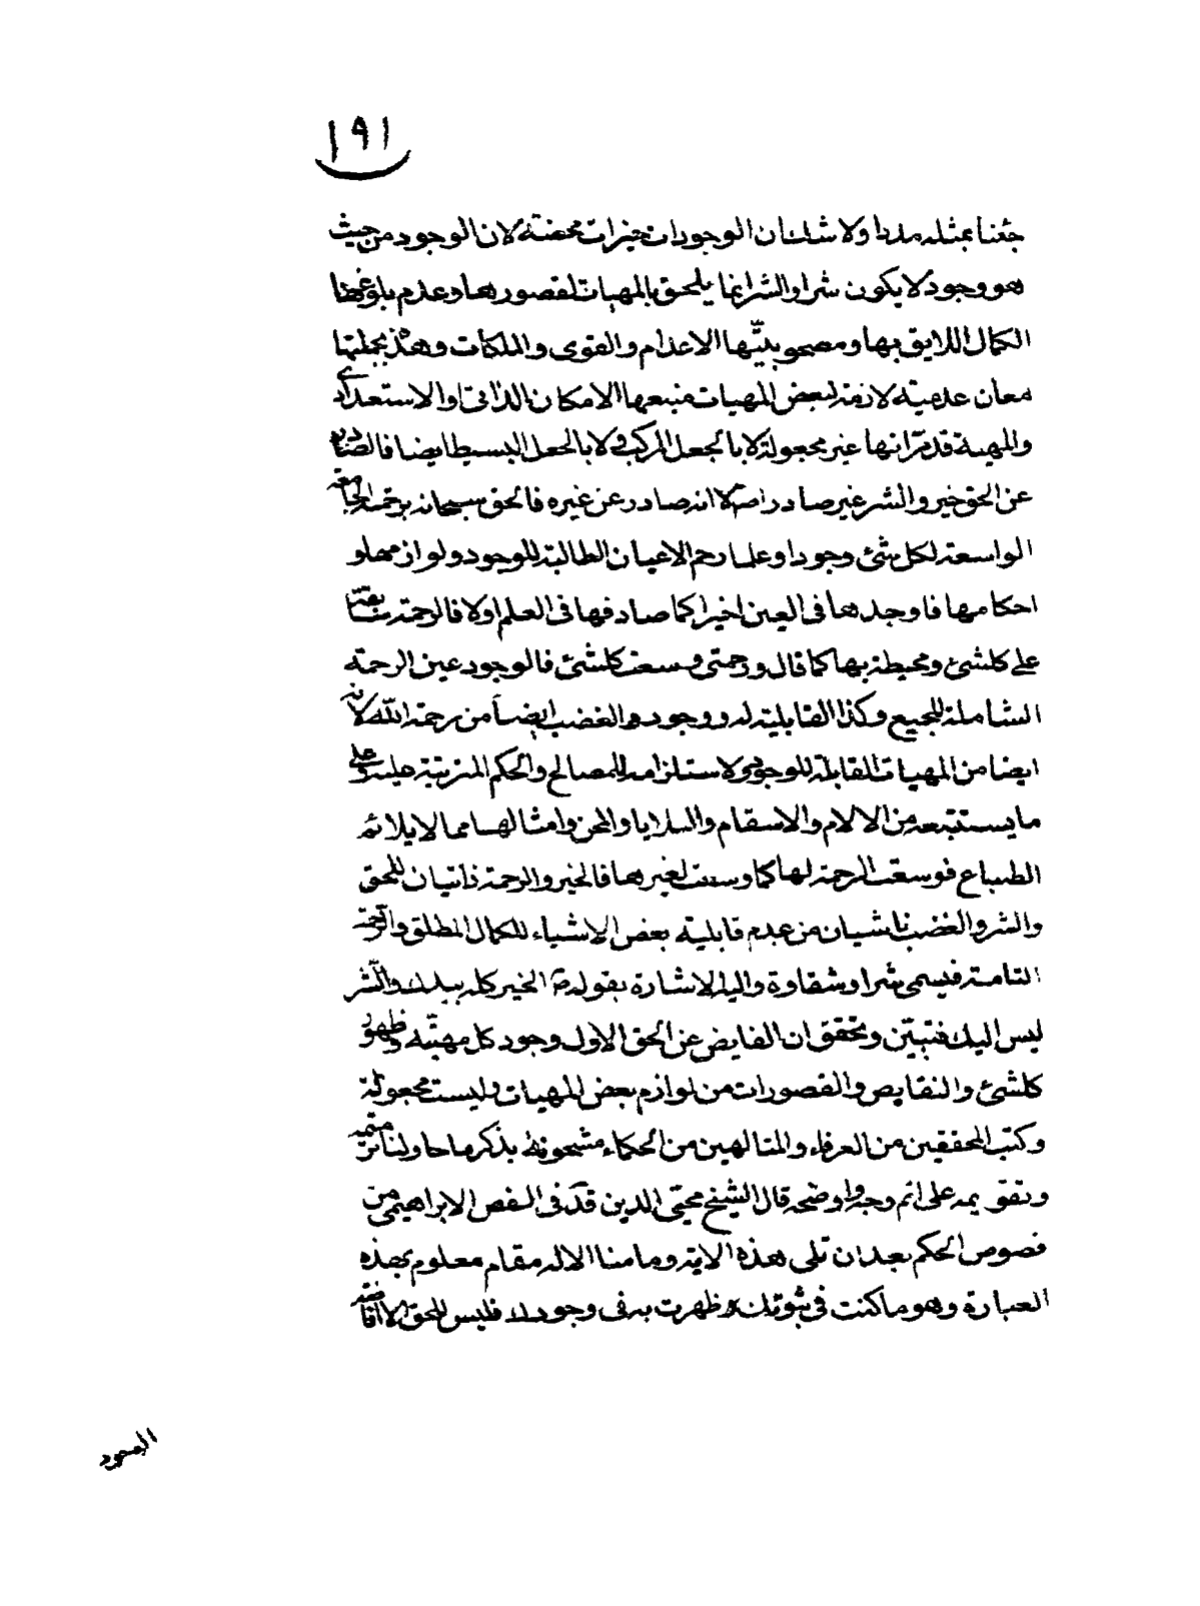 ١٩١
جئنا بمثله مددا ولا شك ان الوجودات خيرات محضة لان الوجود من حيث
هو وجود لا يكون شرا والشر انما يلحق بالمهيات لقصورها وعدم بلوغها
الكمال اللايق بها ومصحوبيتها الاعدام والقوى والملكات وهذه بجملتها
معان عدمية لازمة لبعض المهيات منبعها الامكان الذاتى او الاستعدادى
والمهية قد مر انها غير مجعولة لا بالجعل المركب ولا بالجعل البسيط ايضا فالصادر
عن الحق خير والشر غير صادر اصلا لا انه صادر عن غيره فالحق سبحانه برحمته الجامعة
الواسعة لكل شئ وجودا وعلما رحم الاعيان الطالبة للوجود ولوازمها و
احكامها فاوجدها فى العين اخيرا كما صادفها فى العلم اولا فالرحمة سابقة
على كلشئ ومحيطة بها كما قال ورحمتى وسعت كلشئ فالوجود عين الرحمة
الشاملة للجميع وكذا القابلية له ووجود الغضب ايضاً من رحمة الله لانه
ايضا من المهيات القابلة للوجود ولاستلزامه للمصالح والحكم المترتبة عليه وعلى
ما يستتبعه من الالام والاسقام والبلايا والمحن وامثالها مما لا يلائم
الطباع فوسعت الرحمة لها كما وسعت لغيرها فالخير والرحمة ذاتيان للحق
والشر والغضب ناشيان من عدم قابلية بعض الاشياء للكمال المطلق والرحمة
التامة فيسمى شرا وشقاوة واليه الاشارة بقوله ص الخير كله بيديك والشر
ليس اليك فتبين وتحقق ان الفايض عن الحق الاول وجود كل مهيّة وظهور
كلشئ والنقايص والقصورات من لوازم بعض المهيات وليست مجعولة
وكتب المحققين من العرفاء والمتالهين من الحكماء مشحونة بذكر ما حاولنا تتميمه
وتقويمه على اتم وجه واوضحه قال الشيخ محيى الدين قده فى الفص الابراهيمى من
فصوص الحكم بعد ان تلى هذه الاية وما منا الا له مقام معلوم بهذه
العبارة وهو ما كنت فى ثبوتك ظهرت به فى وجودك فليس للحق الا افاضة
الوجود